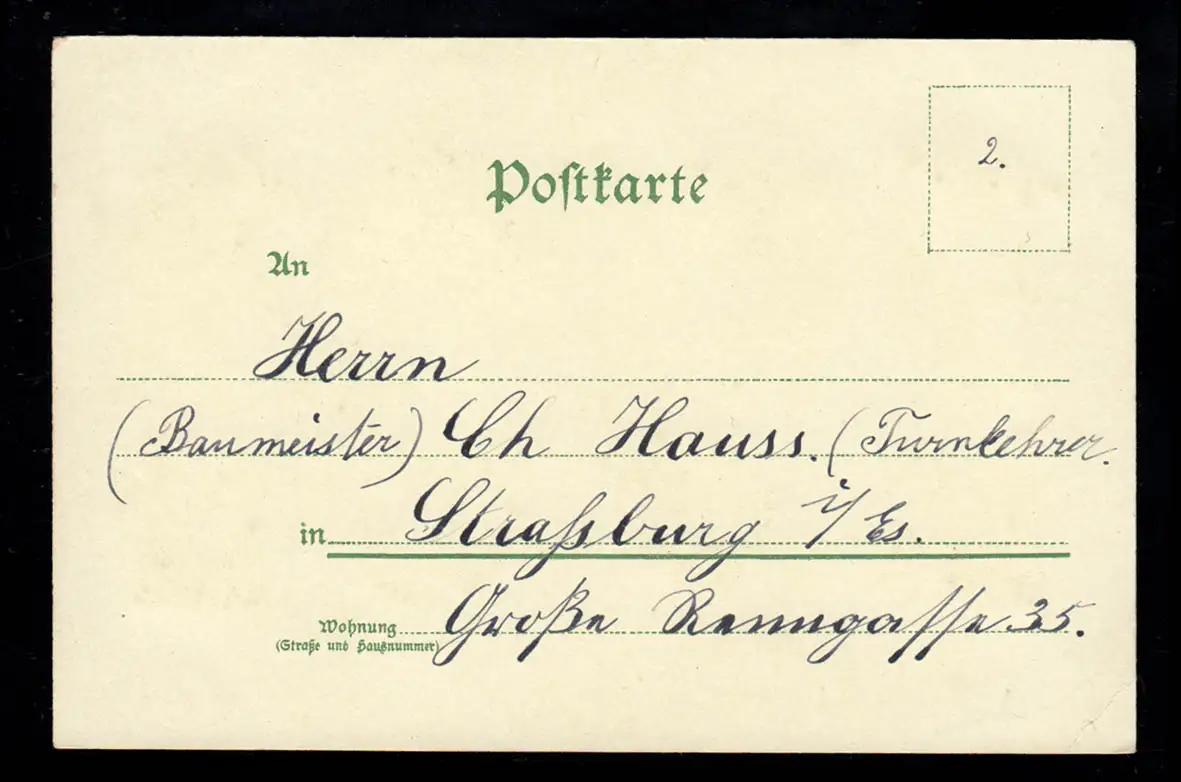 2.
Postkarte
An
Herrn
(Baumeister) Ch Hauss. (Turnlehrer.
in Straßburg i/ Es.
Wohnung Große Renngasse 35.
(Straße und Hausnummer)